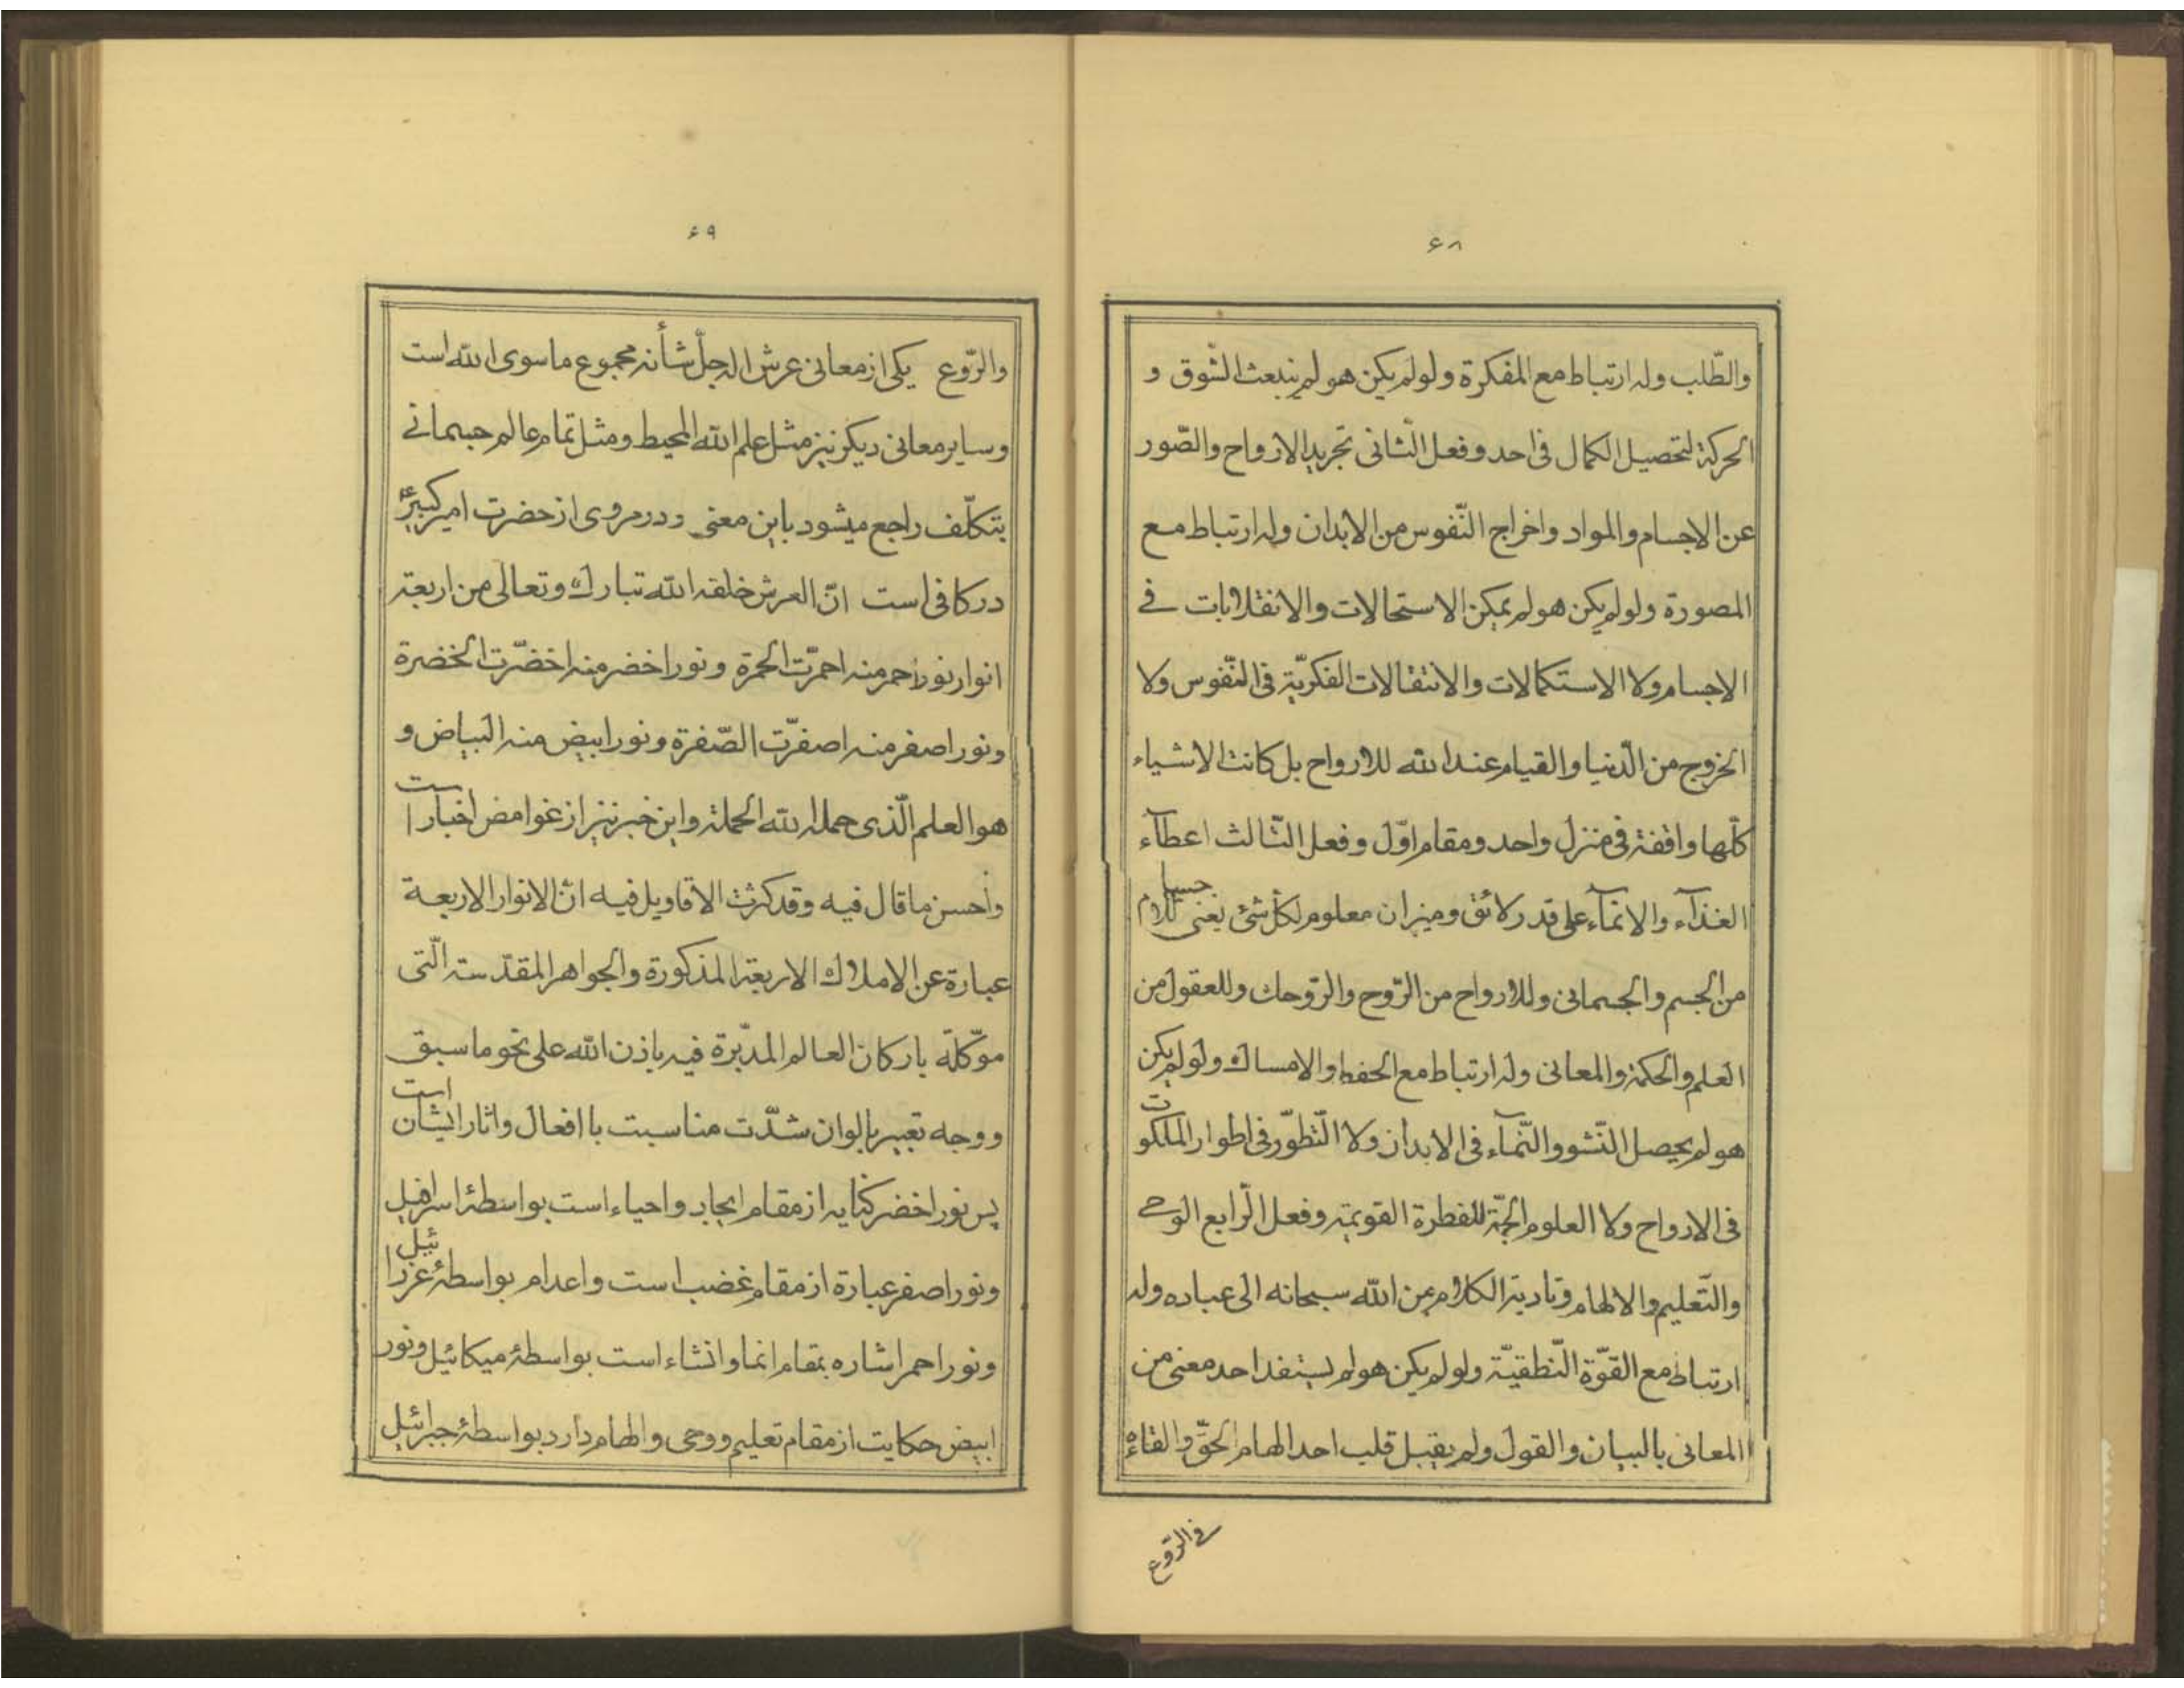 ۶۸
والطّلب وله ارتباط مع المفكرة ولو لم يكن هو لم ينبعث الشوق و
الحركة لتحصيل الكمال فى احد وفعل الثّانى تجريد الارواح والصّور
عن الاجسام والمواد واخراج النّفوس من الابدان وله ارتباط مع
المصورة ولو لم يكن هو لم يمكن الاستحالات والانقلابات فے
الاجسام ولا الاستكمالات والانتقالات الفكريّة فى النّفوس ولا
الخروج من الدّنيا والقيام عند الله للارواح بل كانت الاشياء
كلّها واقفة فى منزل واحد ومقام اوّل وفعل الثّالث اعطآء
الغذآء والانمآء على قدر لائق وميزان معلوم لكلّ شئ يعنى للاجسام
من الجسم والجسمانى وللارواح من الرّوح والرّوحانى وللعقول من
العلم والحكمة والمعانى وله ارتباط مع الحفظ والامساك ولو لم يكن
هو لم يحصل النّشو والنّمآء فى الابدان ولا التّطوّر فى اطوار الملكوت
فى الارواح ولا العلوم الجمّة للفطرة القويمة وفعل الرّابع الوحے
والتّعليم والالهام وتادية الكلام من الله سبحانه الى عباده وله
ارتباط مع القوّة النّطقيّة ولو لم يكن هو لم يستفد احد معنى من
المعانى بالبيان والقول ولم يقبل قلب احد الهام الحقّ والقاءه
فى الرّوع
۶۹
والرّوع يكى از معانى عرش اله جلّ شأنه مجموع ماسوى الله است
وساير معانى ديكر نيز مثل علم الله المحيط ومثل تمام عالم جسمانے
بتكلّف راجع ميشود باين معنى ودر مروى از حضرت امير كبير ع
در كافى است انّ العرش خلقه الله تبارك وتعالى من اربعة
انوار نور احمر منه احمرّت الحمرة ونور اخضر منه اخضرّت الخضرة
ونور اصفر منه اصفرّت الصّفرة ونور ابيض منه البياض و
هو العلم الّذى حمله الله الحملة واين خبر نيز از غوامض اخبار است
واحسن ما قال فيه وقد كثرت الاقاويل فيه انّ الانوار الاربعة
عبارة عن الاملاك الاربعة المذكورة والجواهر المقدّسة الّتى
موكّلة باركان العالم المدبّرة فيه باذن الله على نحو ما سبق
ووجه تعبير بالوان شدّت مناسبت با افعال واثار ايشان است
پس نور اخضر كنايه از مقام ايجاد واحياء است بواسطهٔ اسرافيل
ونور اصفر عبارة از مقام غضب است واعدام بواسطهٔ عزرائيل
ونور احمر اشاره بمقام انما وانشاء است بواسطهٔ ميكائيل ونور
ابيض حكايت از مقام تعليم ووحى والهام دارد بواسطهٔ جبرائيل